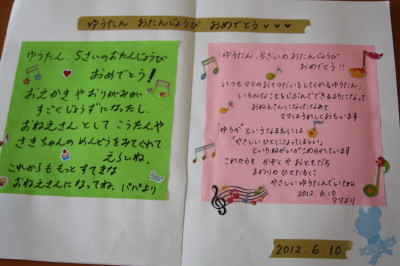 ゆうたん おたんじょうび おめでとう♥♥♥
ゆうたん、5さいのおたんじょうび
おめでとう!
おえかきや おりがみが
すごくじょうずになったし、
おねえさんとして こうたんや
さきちゃんの めんどうをみてくれて
えらいね。
これからも もっと すてきな
おねえさんになってね。パパより
ゆうたん、5さいのおたんじょうび
おめでとう!!
いつもママのおてつだいをしてくれるゆうたん。
いろんなことをじぶんでできるようになって
おねえさんになったなぁと
ママはうれしくおもいます
"ゆうか"というなまえには
"やさしいひとになってほしい"
というねがいがこめられています
これからも かぞくや おともだち
まわりの ひとたちに
やさしいゆうたんでいてね
2012.6.10
ママより
2012.6.10